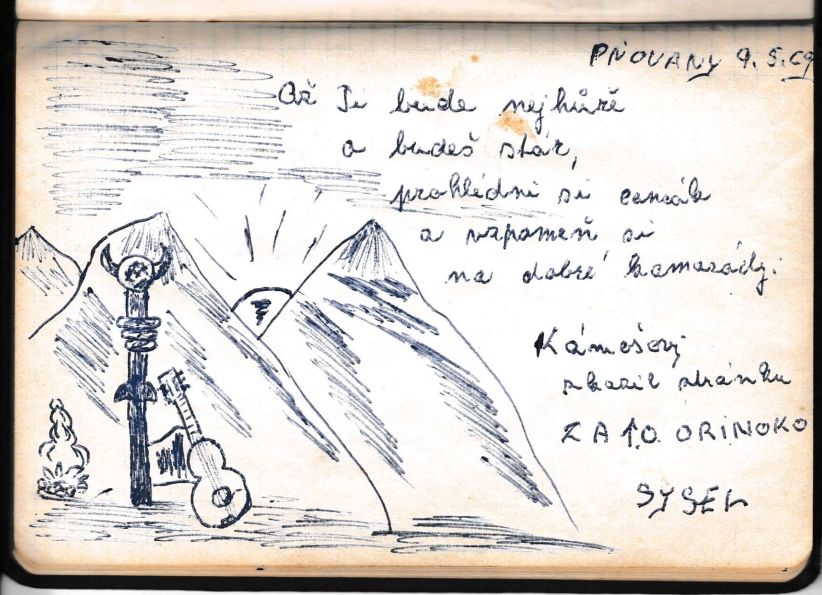 PŇOVANY 9. 5. 69
Až Ti bude nejhůře
a budeš stár,
prohlédni si cancák
a vzpomeň si
na dobré kamarády.
Kámešovj
zkazil stránku
ZA TO ORINOKO
SYSEL